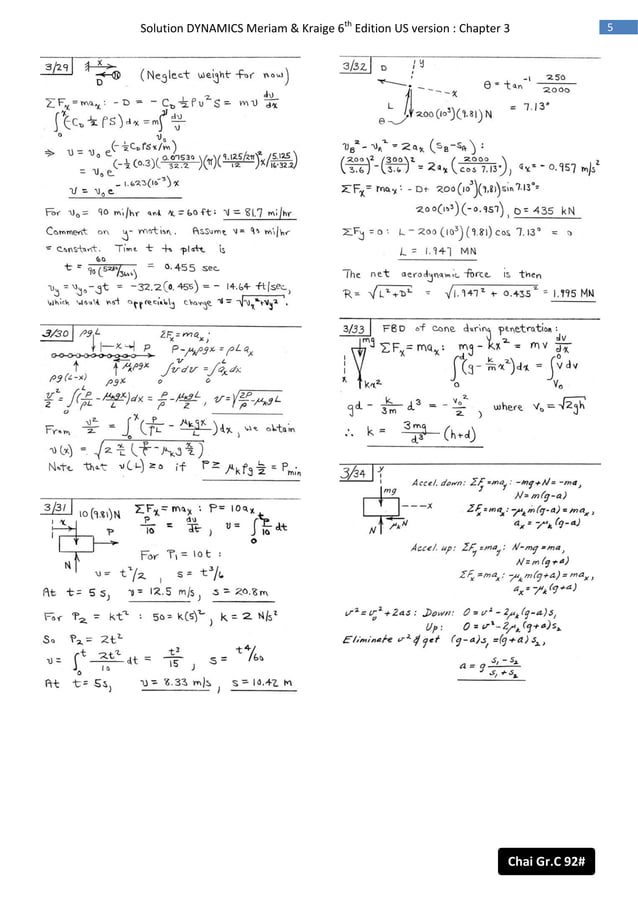 Solution DYNAMICS Meriam & Kraige 6th Edition US version : Chapter 3
5
3/29
x
D
(Neglect weight for now)
ΣFx = max : - D = - CD ½ ρ v² S = m v dv/dx
∫₀ˣ (-CD ½ ρ S) dx = m ∫ᵥ₀ᵛ dv/v
⇒ v = v₀ e^(-½ CD ρ S x/m)
= v₀ e^(-½ (0.3)(0.07530/32.2)(π)(9.125/2π/12)² x/(5.125/16·32.2))
v = v₀ e^(-1.623(10⁻³) x)
For v₀ = 90 mi/hr and x = 60 ft : v = 81.7 mi/hr
Comment on y-motion. Assume v = 90 mi/hr
= constant. Time t to plate is
t = 60/(90 (5280/3600)) = 0.455 sec
vy = vy₀ - gt = -32.2(0.455) = - 14.64 ft/sec,
which would not appreciably change v = √(vx²+vy²).
3/30
ρgL
x
P
μkρgx
ρg(L-x)
ρgx
ΣFx = max ;
P - μkρgx = ρL ax
∫₀ᵛ v dv = ∫₀ᴸ ax dx
v²/2 = ∫₀ᴸ (P/ρL - μkgx/L) dx = P/ρ - μkgL/2 , v = √(2P/ρ - μkgL)
From v²/2 = ∫₀ˣ (P/ρL - μkgx/L) dx , we obtain
v(x) = √(2 x/L (P/ρ - μkg x/2))
Note that v(L) ≥ 0 if P ≥ μkρg L/2 = Pmin
3/31
10(9.81) N
x
P
N
ΣFx = max : P = 10 ax
P/10 = dv/dt , v = ∫₀ᵗ P/10 dt
For P₁ = 10t :
v = t²/2 , s = t³/6
At t = 5 s, v = 12.5 m/s , s = 20.8 m
For P₂ = kt² : 50 = k(5)² , k = 2 N/s²
So P₂ = 2t²
v = ∫₀ᵗ 2t²/10 dt = t³/15 , s = t⁴/60
At t = 5s, v = 8.33 m/s , s = 10.42 m
3/32
D
y
x
L
θ
200(10³)(9.81) N
θ = tan⁻¹ 250/2000
= 7.13°
vB² - vA² = 2ax (sB - sA) :
(200/3.6)² - (300/3.6)² = 2ax (2000/cos 7.13°) , ax = - 0.957 m/s²
ΣFx = max : - D + 200(10³)(9.81) sin 7.13° =
200(10³)(-0.957) , D = 435 kN
ΣFy = 0 : L - 200(10³)(9.81) cos 7.13° = 0
L = 1.947 MN
The net aerodynamic force is then
R = √(L²+D²) = √(1.947² + 0.435²) = 1.995 MN
3/33
FBD of cone during penetration :
mg
x
kx²
ΣFx = max : mg - kx² = mv dv/dx
∫₀ᵈ (g - k/m x²) dx = ∫ᵥ₀⁰ v dv
gd - k/3m d³ = - v₀²/2 , where v₀ = √2gh
∴ k = 3mg/d³ (h+d)
3/34
y
mg
x
N
μkN
Accel. down: ΣFy = may : -mg + N = -ma,
N = m(g-a)
ΣFx = max : -μk m(g-a) = max ,
ax = -μk (g-a)
Accel. up: ΣFy = may : N - mg = ma,
N = m(g+a)
ΣFx = max : -μk m(g+a) = max ,
ax = -μk (g+a)
v² = v₀² + 2as : Down: 0 = v² - 2μk (g-a)s₁
Up: 0 = v² - 2μk (g+a)s₂
Eliminate v² & get (g-a)s₁ = (g+a)s₂ ,
a = g (s₁ - s₂)/(s₁ + s₂)
Chai Gr.C 92#